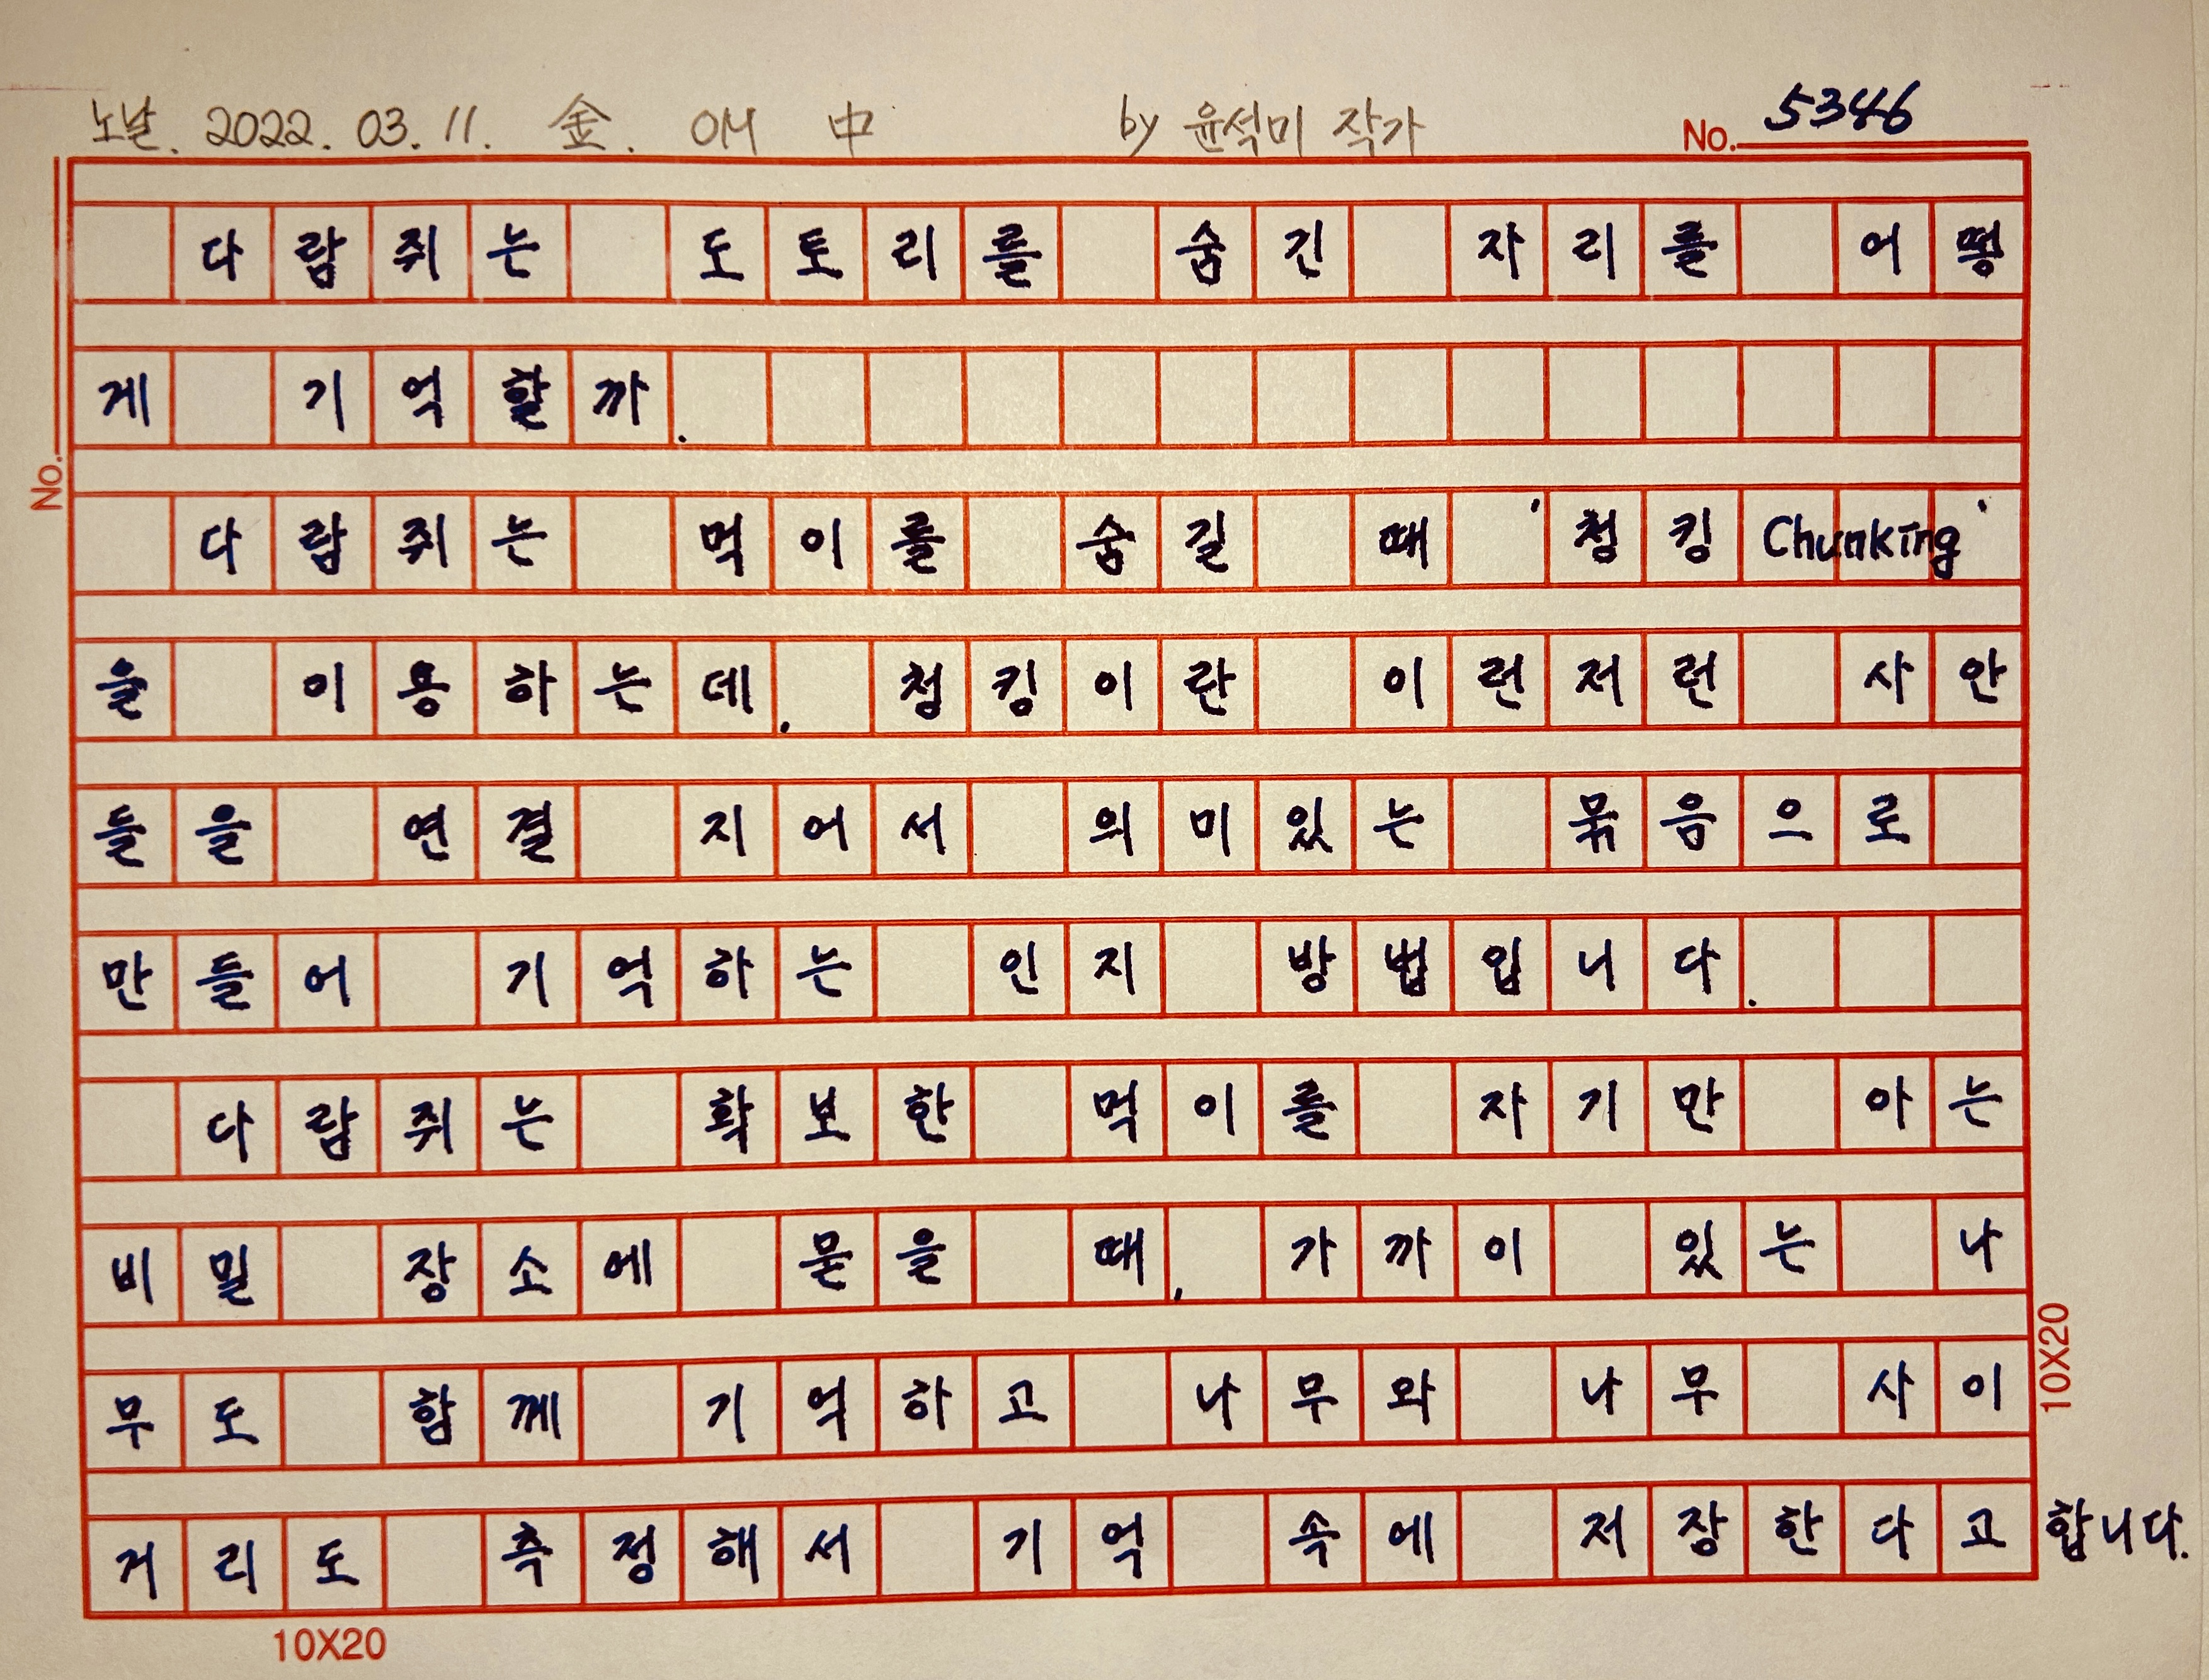 노날. 2022. 03. 11. 金. OM 中 by 윤석미 작가 No. 5346
다람쥐는 도토리를 숨긴 자리를 어떻
게 기억할까.
다람쥐는 먹이를 숨길 때 '청킹Chunking'
을 이용하는데, 청킹이란 이런저런 사안
들을 연결 지어서 의미있는 묶음으로
만들어 기억하는 인지 방법입니다.
다람쥐는 확보한 먹이를 자기만 아는
비밀 장소에 묻을 때, 가까이 있는 나
무도 함께 기억하고 나무와 나무 사이
거리도 측정해서 기억 속에 저장한다고 합니다.
No.
10X20
10X20